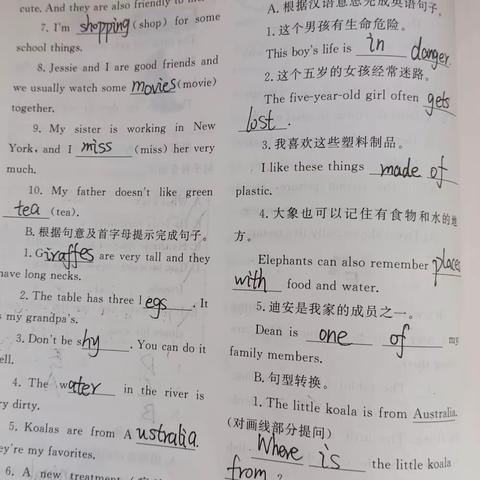 cute. And they are also friendly to
7. I'm shopping (shop) for some
school things.
8. Jessie and I are good friends and
we usually watch some movies (movie)
together.
9. My sister is working in New
York, and I miss (miss) her very
much.
10. My father doesn't like green
tea (tea).
B. 根据句意及首字母提示完成句子。
1. Giraffes are very tall and they
have long necks.
2. The table has three legs. It
s my grandpa's.
3. Don't be shy. You can do it
ell.
4. The water in the river is
ry dirty.
5. Koalas are from Australia.
ey're my favorites.
6. A new treatment
A. 根据汉语意思完成英语句子。
1. 这个男孩有生命危险。
This boy's life is in danger.
2. 这个五岁的女孩经常迷路。
The five-year-old girl often gets
lost.
3. 我喜欢这些塑料制品。
I like these things made of
plastic.
4. 大象也可以记住有食物和水的地
方。
Elephants can also remember places
with food and water.
5. 迪安是我家的成员之一。
Dean is one of my
family members.
B. 句型转换。
1. The little koala is from Australia.
(对画线部分提问)
Where is the little koala
from ?